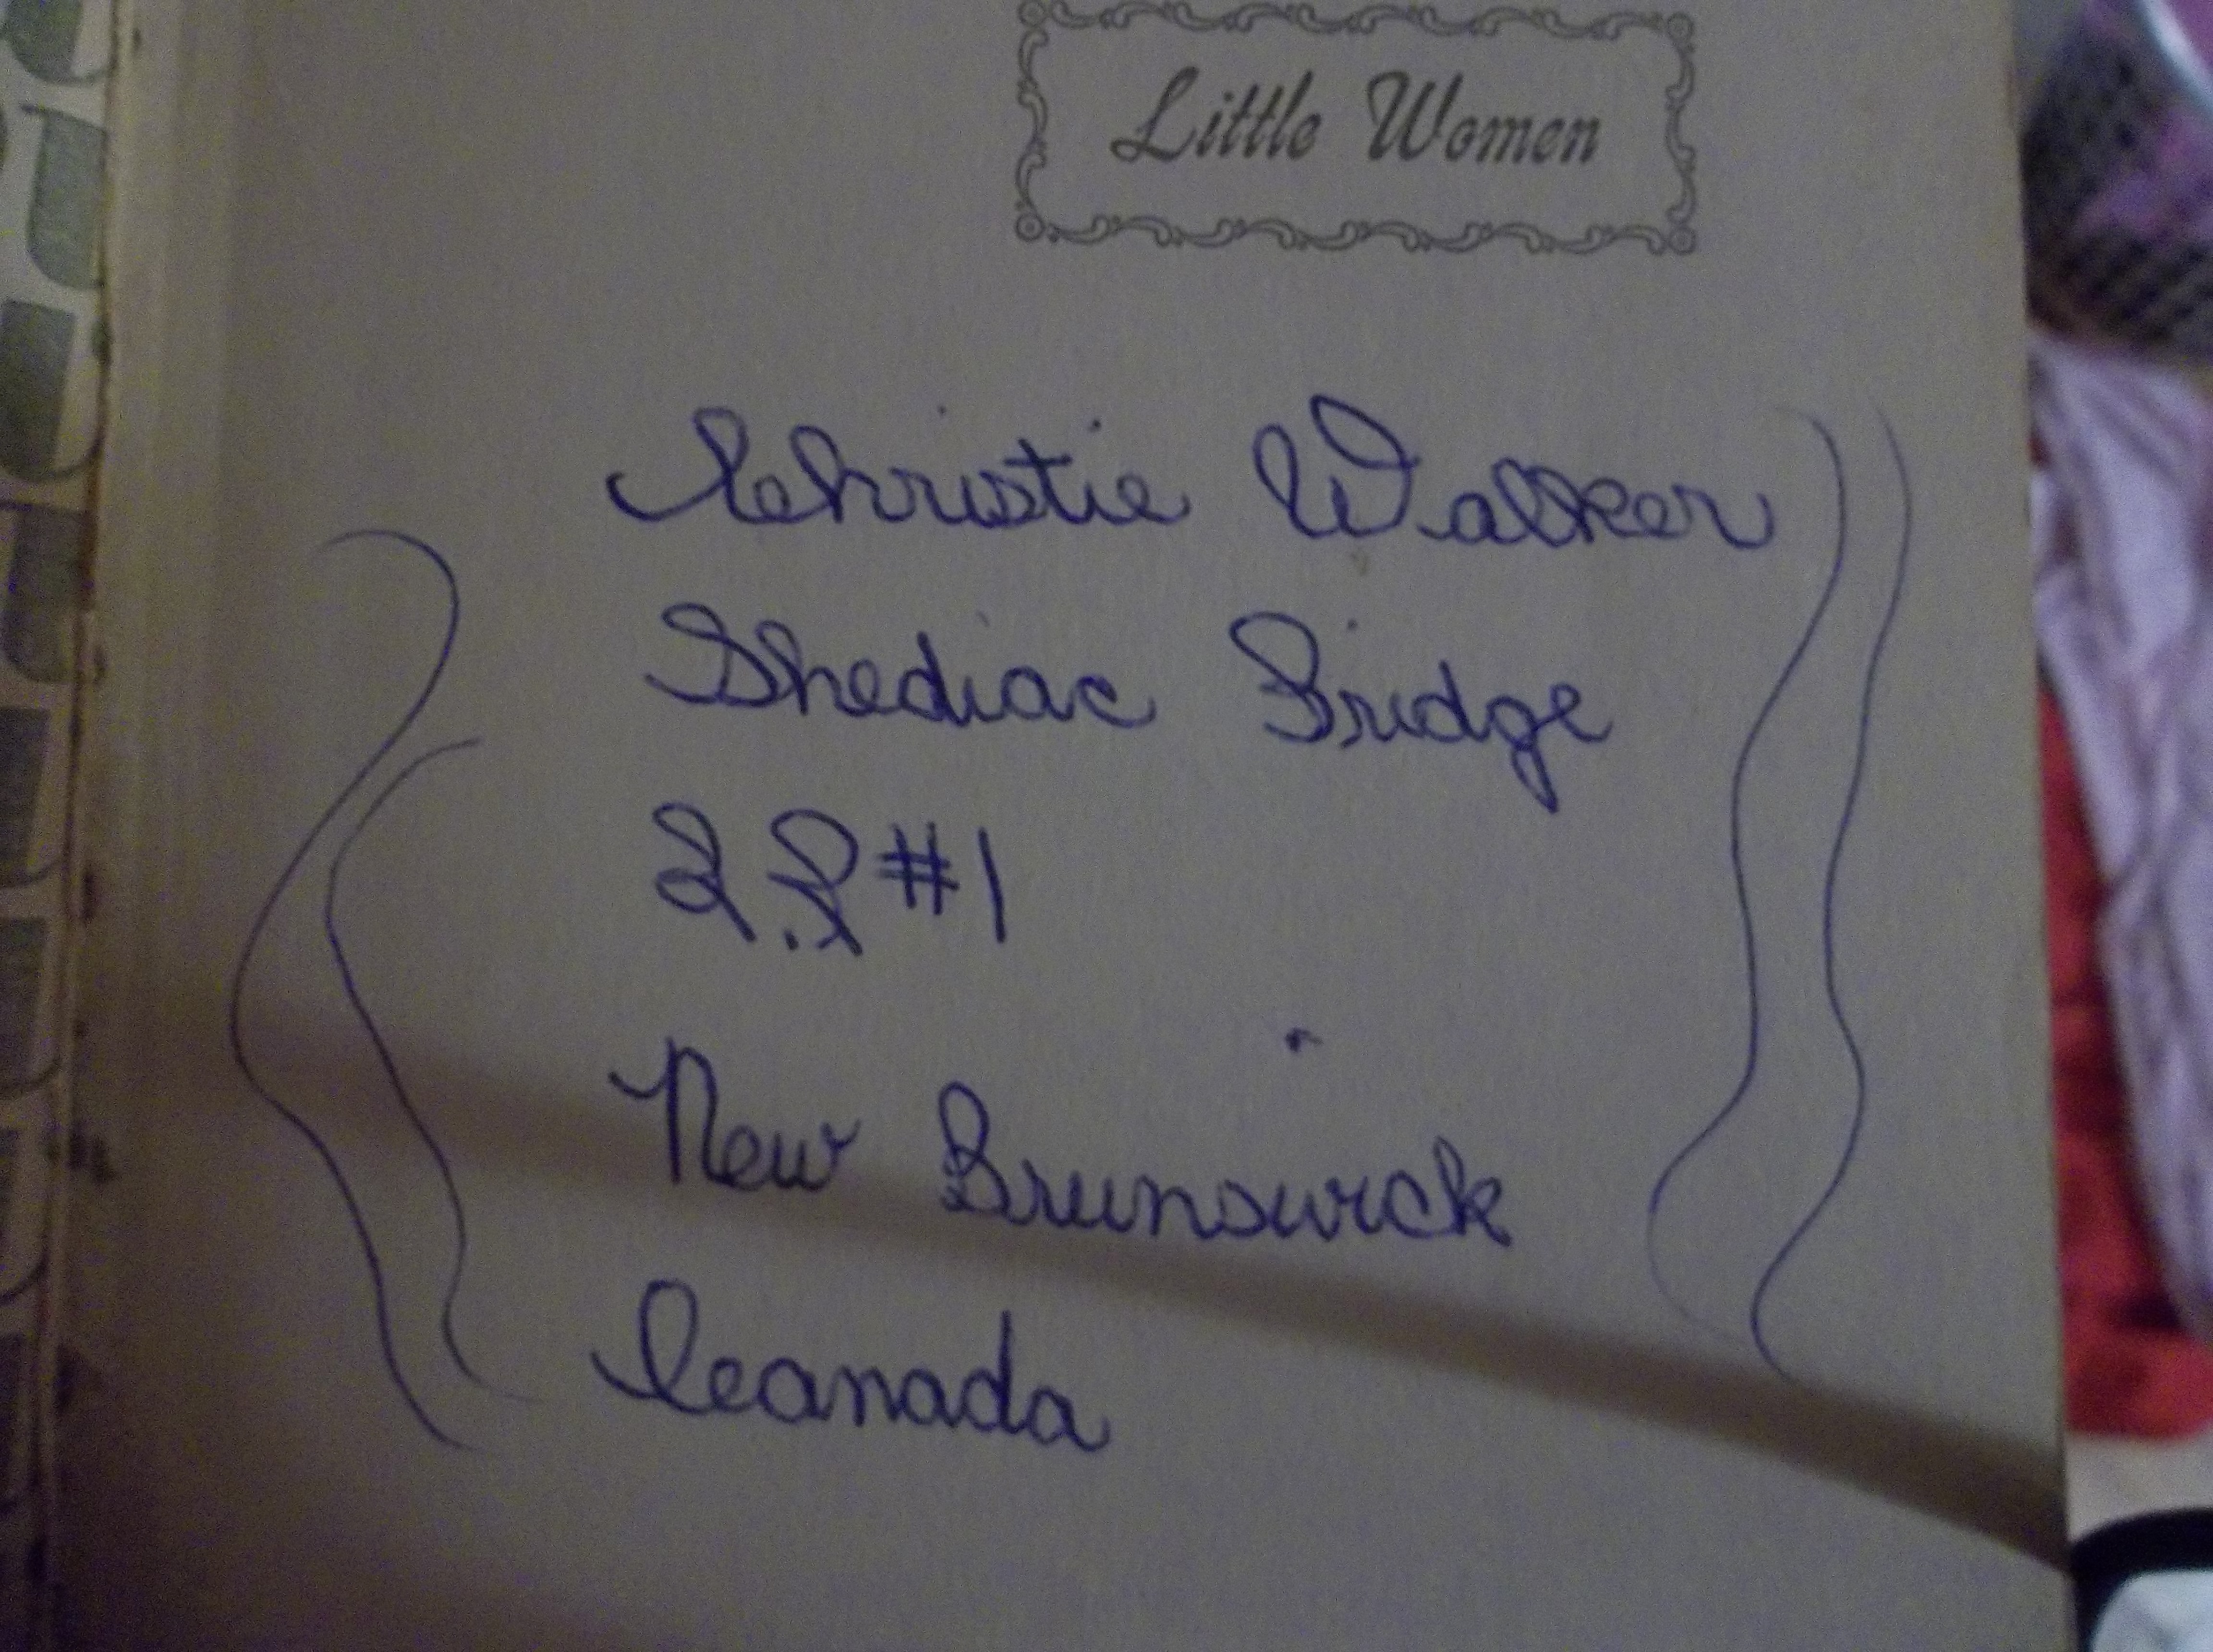 Little Women
Christie Walker
Shediac Bridge
R.R #1
New Brunswick
Canada